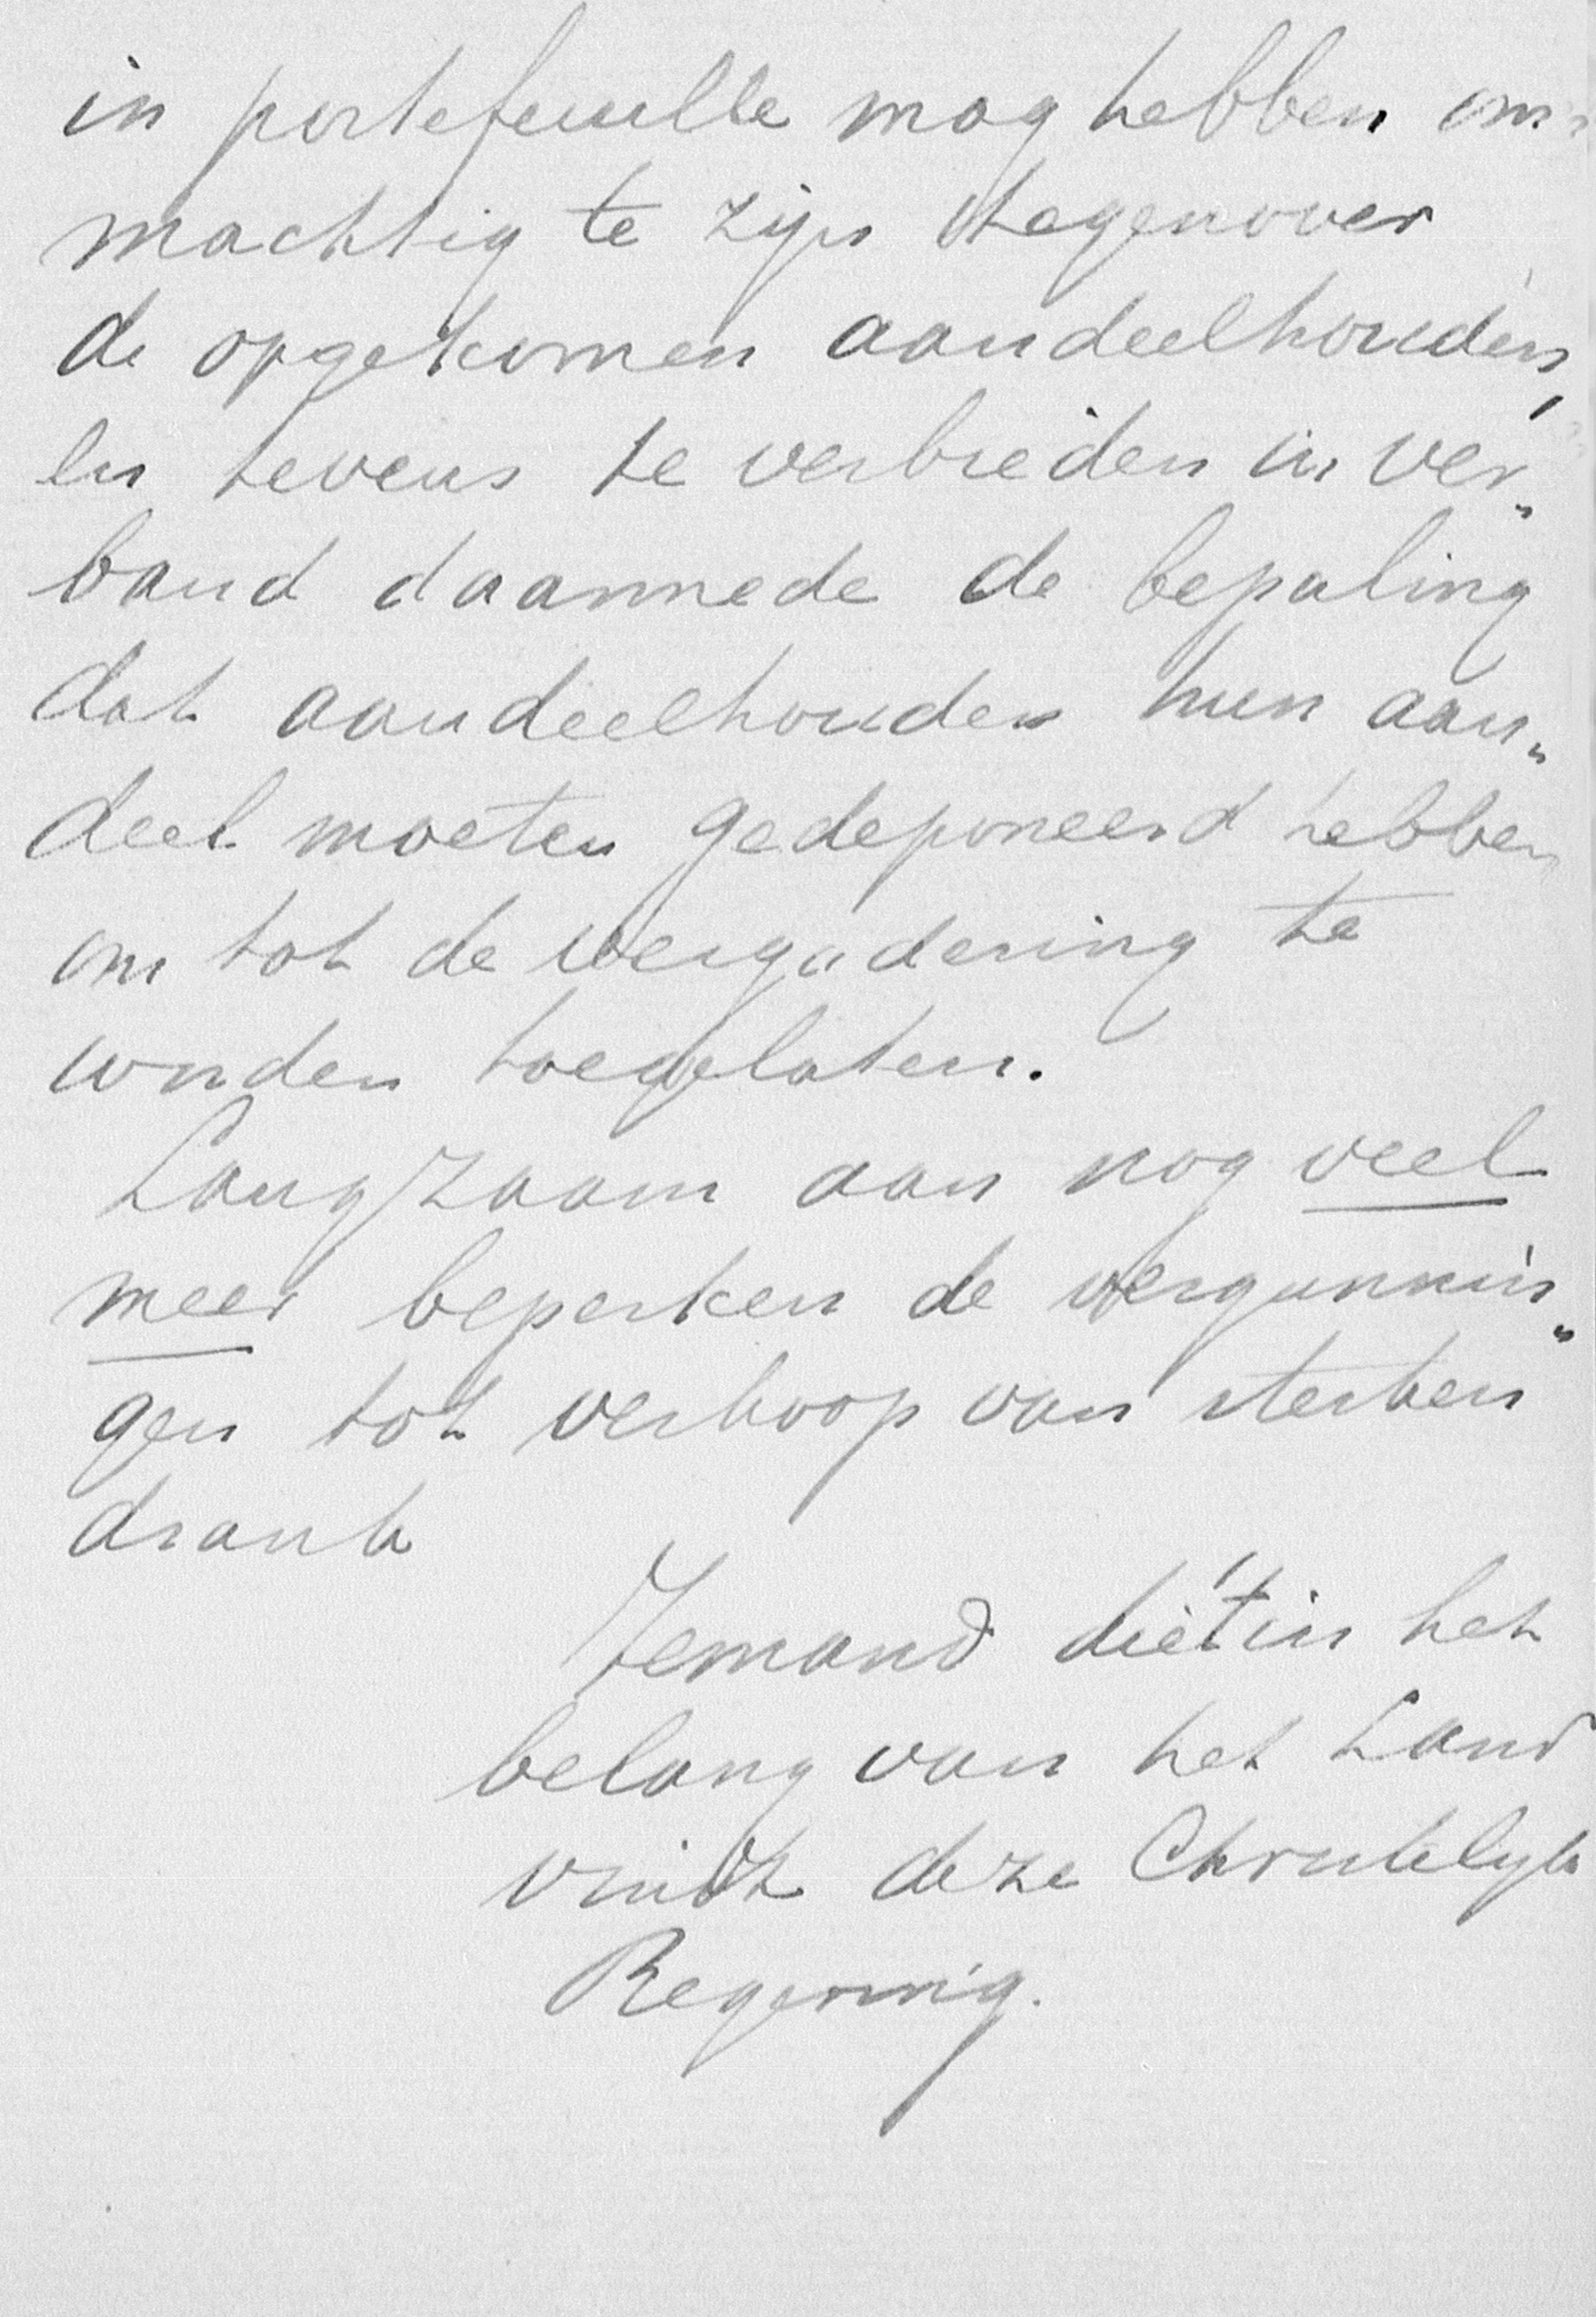 in portefeuille mag hebben om
machtig te zijn tegenover
de opgekomen aandeelhouders,
en tevens te verbieden in ver„
band daarmede de bepaling
dat aandeelhouders hun aan„
deel moeten gedeponeerd hebben
om tot de vergadering te
worden toegelaten.
Langzaam aan nog veel
meer beperken de vergunnin„
gen tot verkoop van sterken
drank
Iemand die 't in het
belang van het Land
vindt deze Christelijk
Regeering.